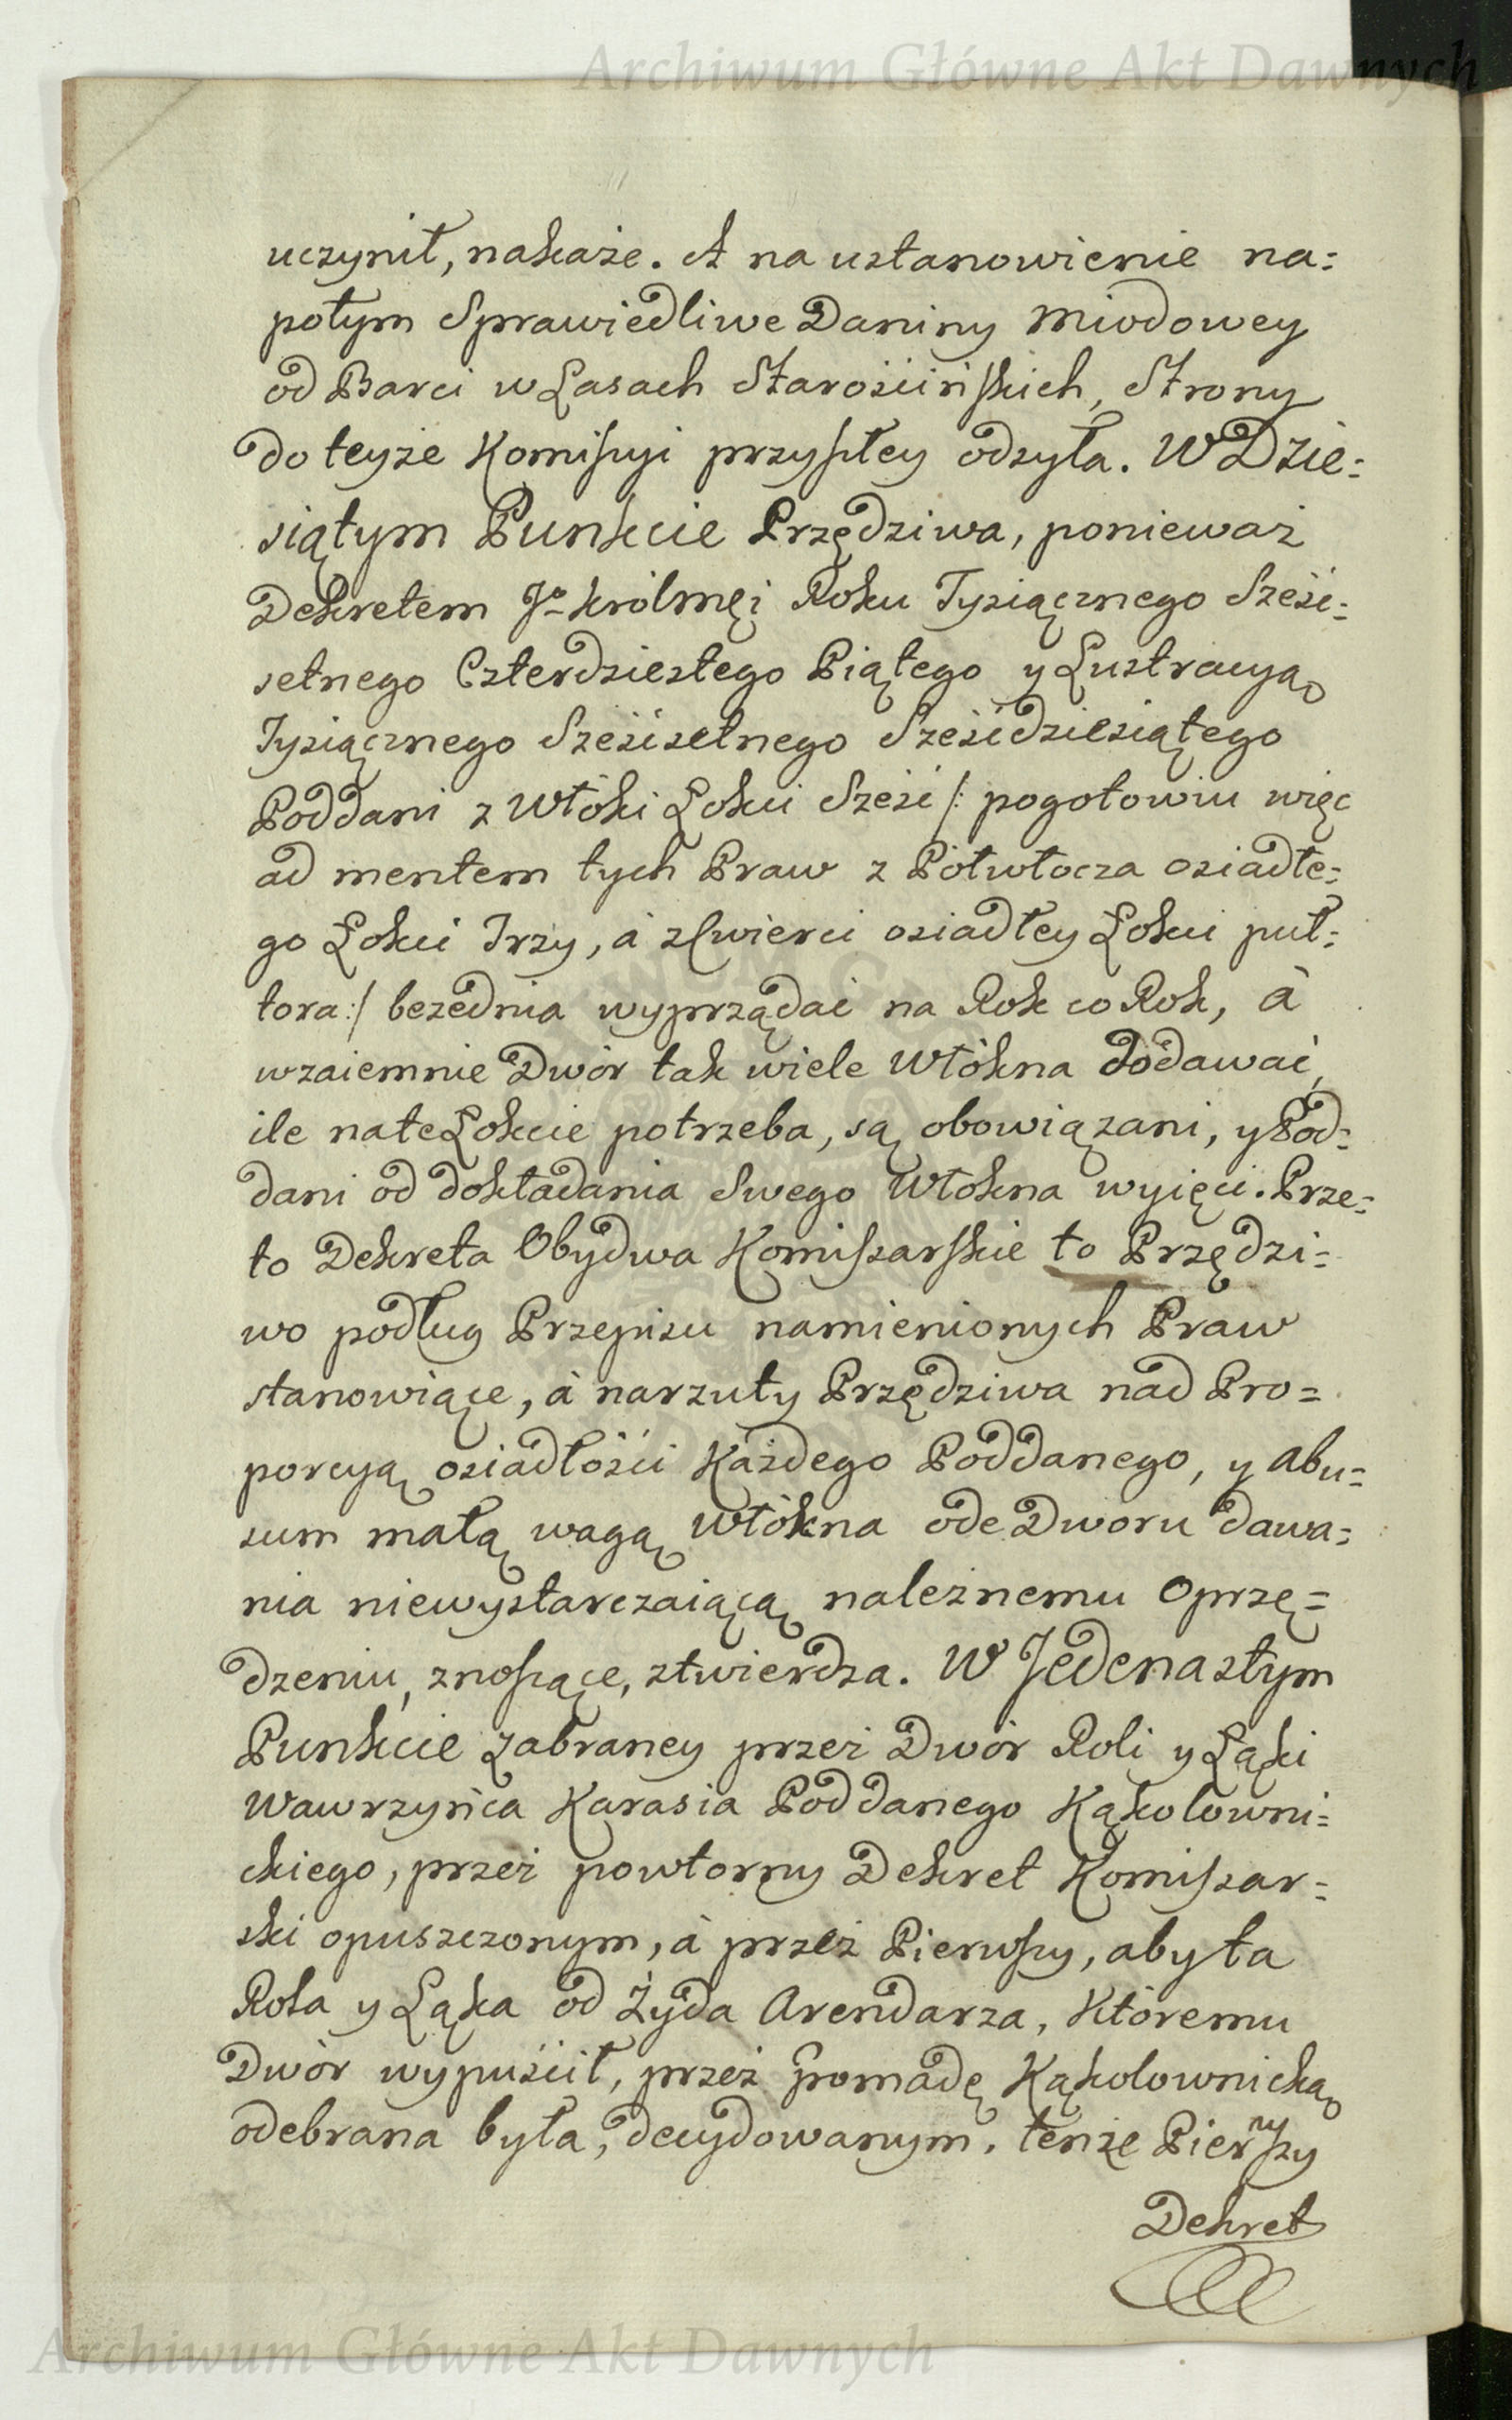 Archiwum Główne Akt Dawnych
uczynił, nakaże. A na ustanowienie na=
potym Sprawiedliwe Daniny Miodowey
od Barci w Lasach Starościńskich, Strony
do teyże Komissyi przyszłey odsyła. W Dzie=
siątym Punkcie Przędziwa, ponieważ
Dekretem Jº Królmći Roku Tysiącznego Sześć=
setnego Czterdziestego Piątego y Lustracyą
Tysiącznego Sześćsetnego Sześćdziesiątego
Poddani z Włoki Łokci Sześć /: pogotowiu więc
ad mentem tych Praw z Półwłocza osiadłe=
go Łokci Trzy, à z Cwierci osiadłey Łokci puł=
tora :/ bezednia wyprządać na Rok co Rok, à
wzaiemnie Dwór tak wiele Włókna dodawać,
ile na te Łokcie potrzeba, są obowiązani, y Pod=
dani od dokładania Swego Włókna wyięci. Prze=
to Dekreta Obydwa Komissarskie to Przędzi=
wo podług Przepisu namienionych Praw
stanowiące, à narzuty Przędziwa nad Pro=
porcyą osiadłości Każdego Poddanego, y abu=
sum małą wagą Włókna ode Dworu dawa=
nia niewystarczaiącą należnemu oprzę=
dzeniu, znoszące, ztwierdza. W Jedenastym
Punkcie Zabraney przez Dwór Roli y Łąki
Wawrzyńca Karasia Poddanego Kąkolowni=
ckiego, przez powtorny Dekret Komissar=
ski opuszczonym, à przez Pierwszy, aby ta
Rola y Łąka od Żyda Arendarza, Któremu
Dwór wypuścił, przez Gromadę Kąkolownicką
odebrana była, decydowanym, tenże Pierwszy
Dekret
Archiwum Główne Akt Dawnych